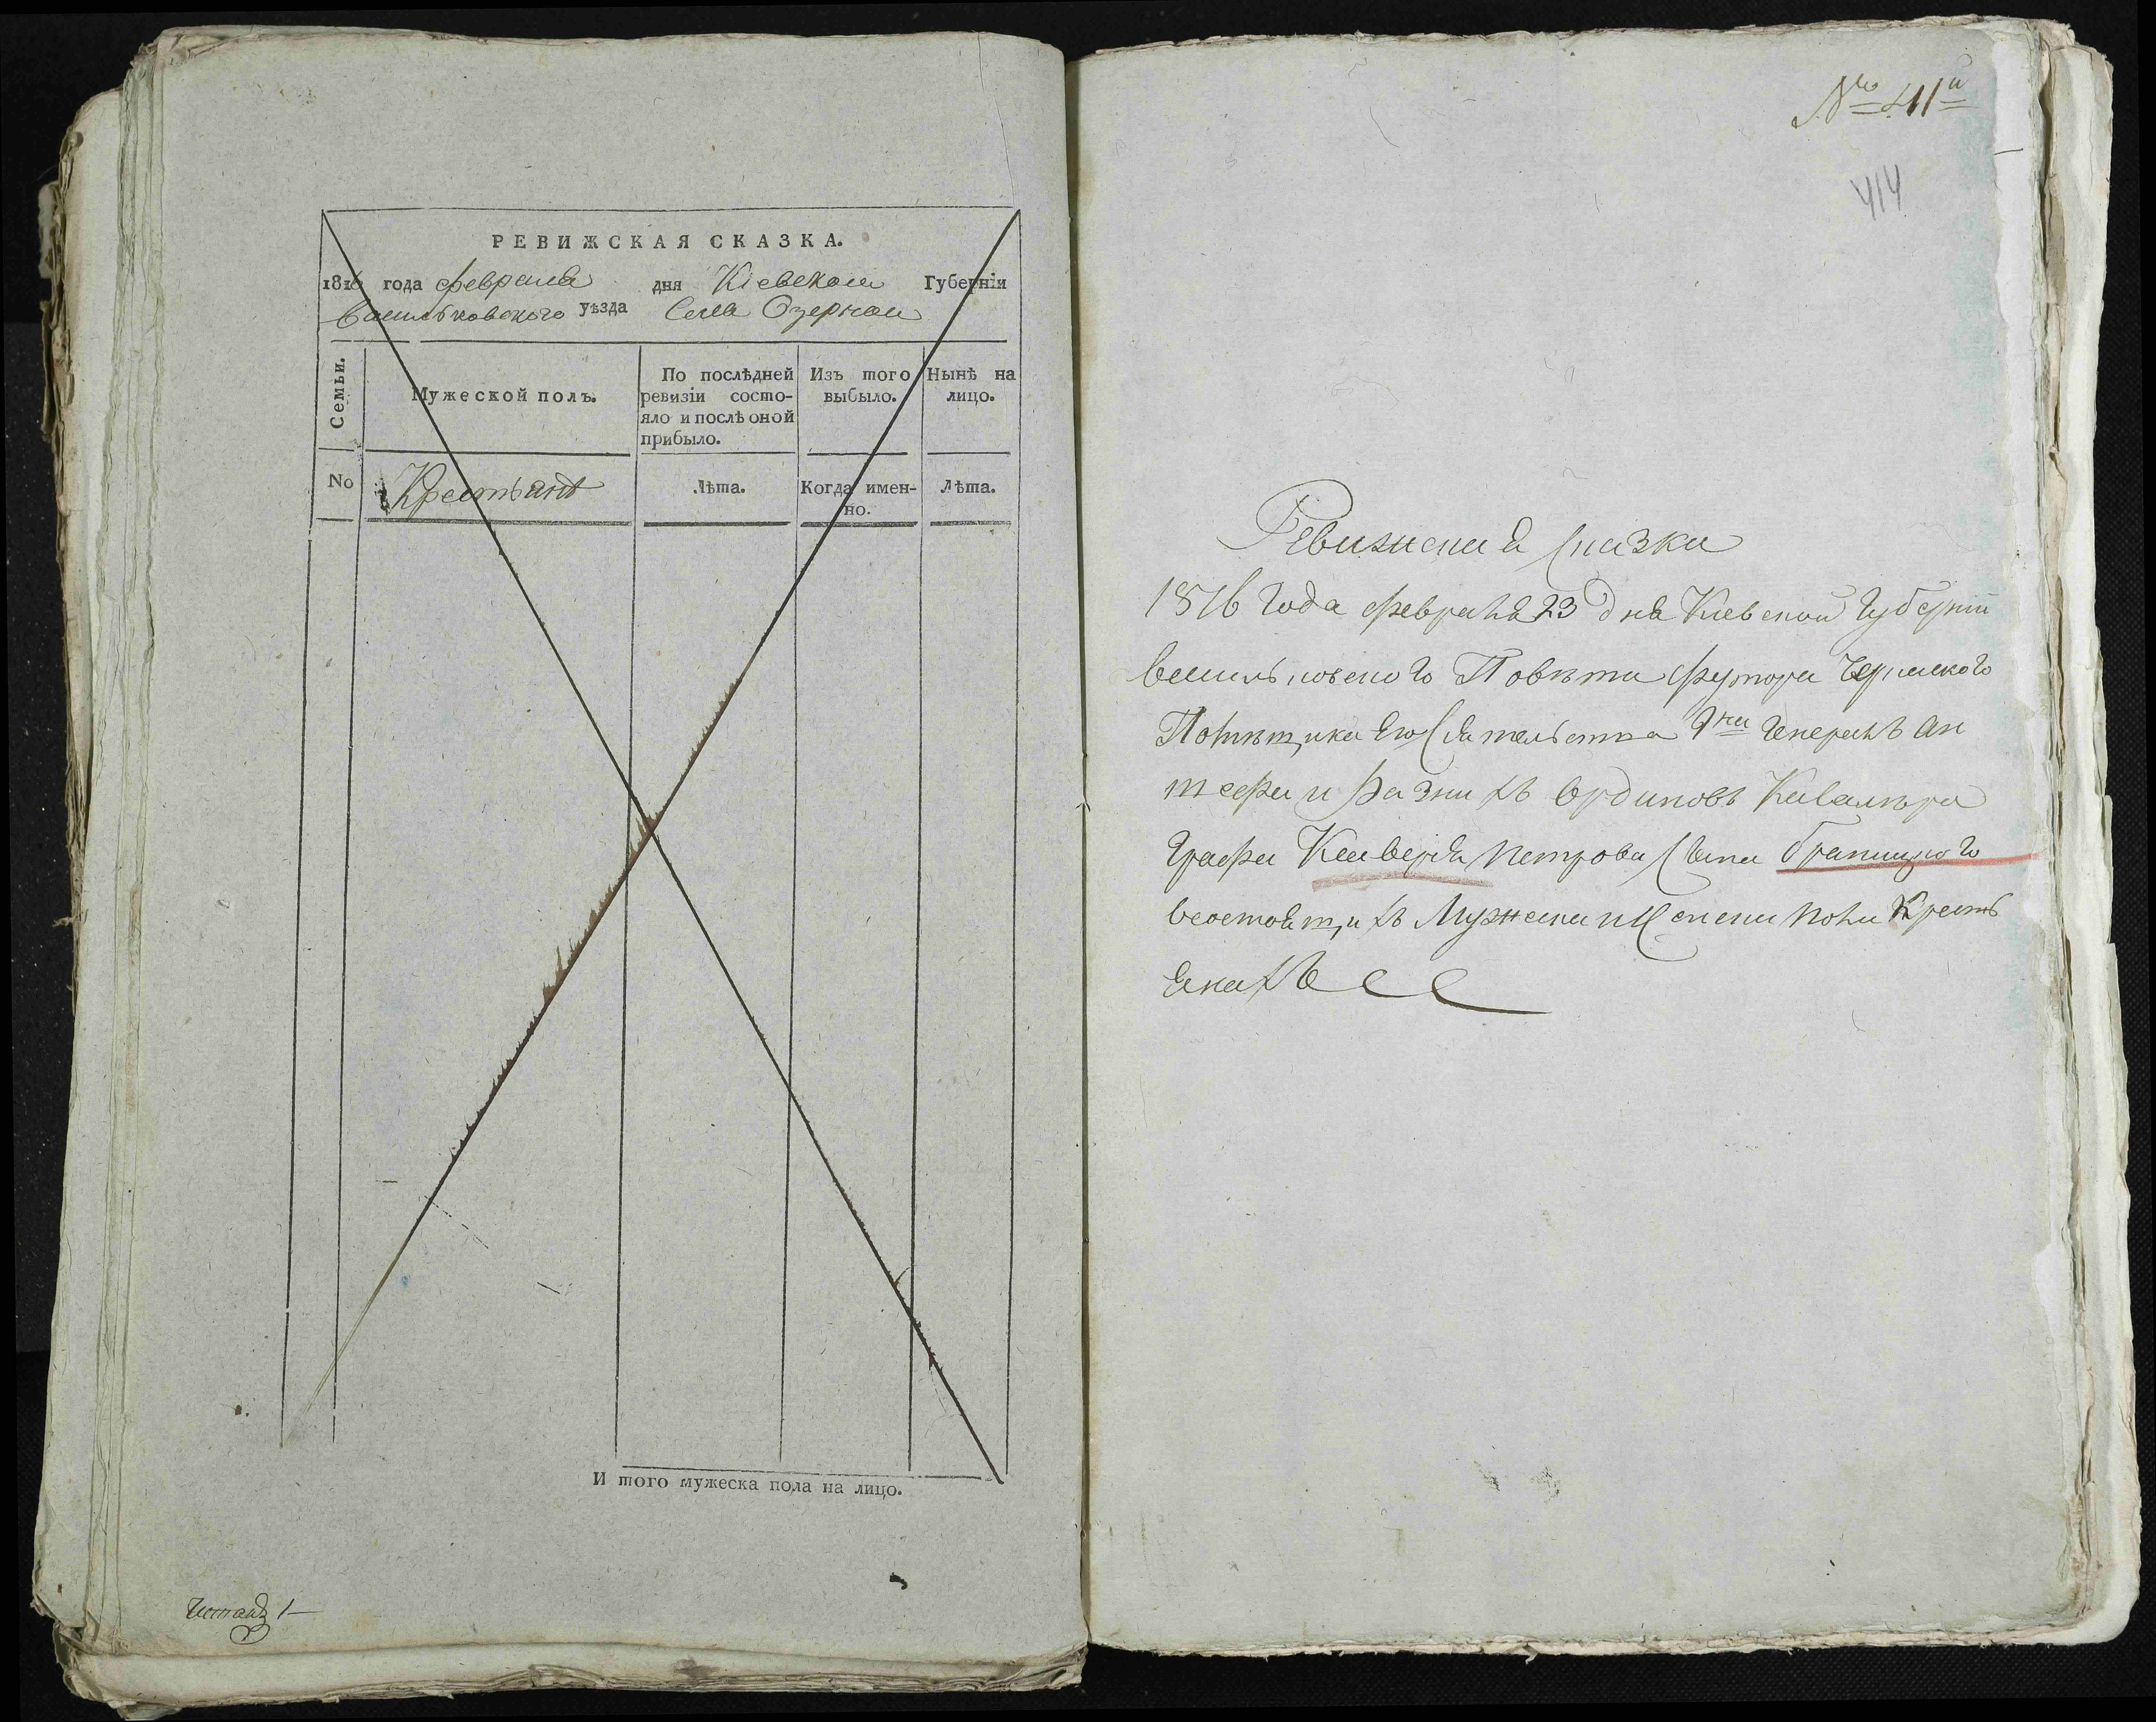 РЕВИЖСКАЯ СКАЗКА.
1816 года февраля дня Кіевской Губерніи
Васильковского Уѣзда Села Озерной
Семьи.
Мужеской полъ.
По послѣдней ревизіи состо-
яло и послѣ оной
прибыло.
Изъ того
выбыло.
Нынѣ на
лицо.
No
Крестьянъ
Лѣта.
Когда имен-
но.
Лѣта.
И того мужеска пола на лицо.
Чистая 1
№ 411й
414
Ревизская Сказка
1816 Года февраля 23 дня Киевской Губернїи
Василковского Повѣта футора
Помѣщика Его Сиятельства Гна Генералъ Ан
шефа и разныхъ Ординовъ Кавалѣра
Графа Ксаверія Петрова Сына Браницкого
Состоящихъ Мужеска и Женска Пола Кресть
янахъ